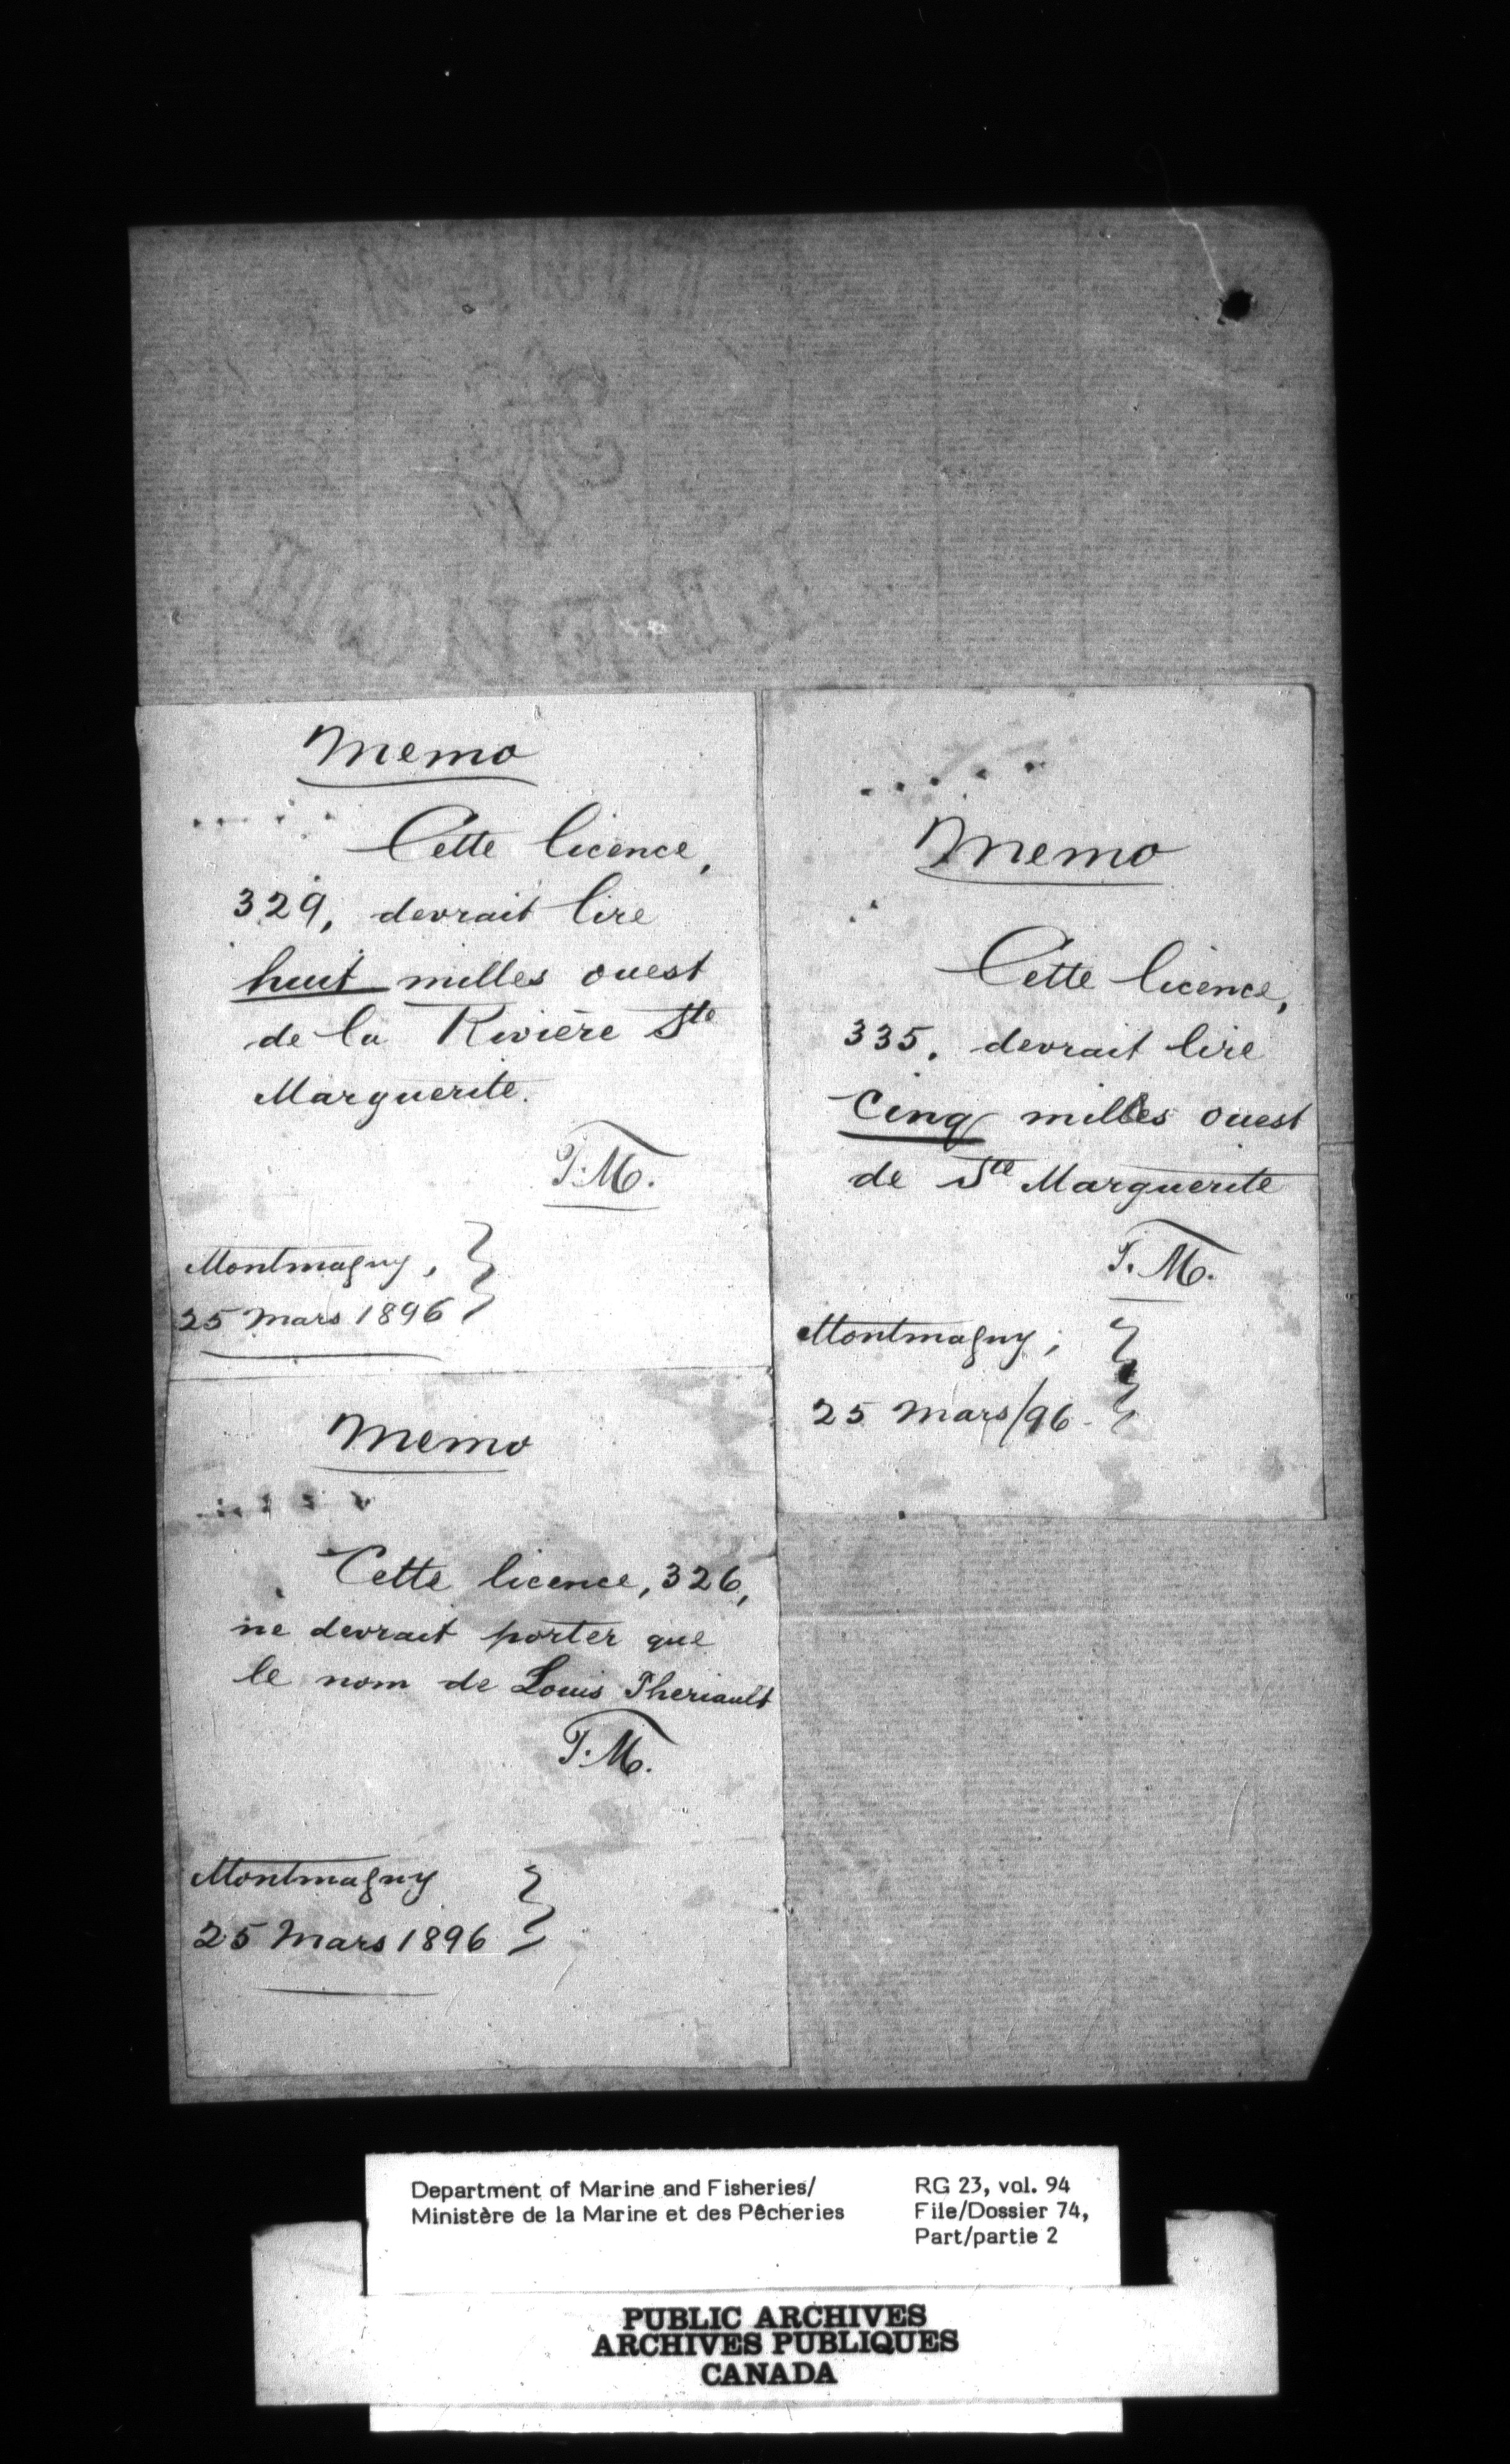 Memo
Cette licence,
329, devrait lire
huit milles ouest
de la Rivière Ste
Marguerite.
T.M.
Montmagny,
25 Mars 1896
Memo
Cette licence, 326,
ne devrait porter que
le nom de Louis Theriault
T.M.
Montmagny
25 Mars 1896
Memo
Cette licence,
335, devrait lire
Cinq milles ouest
de Ste Marguerite
T.M.
Montmagny,
25 Mars/96
Department of Marine and Fisheries/
Ministère de la Marine et des Pêcheries
RG 23, vol. 94
File/Dossier 74,
Part/partie 2
PUBLIC ARCHIVES
ARCHIVES PUBLIQUES
CANADA